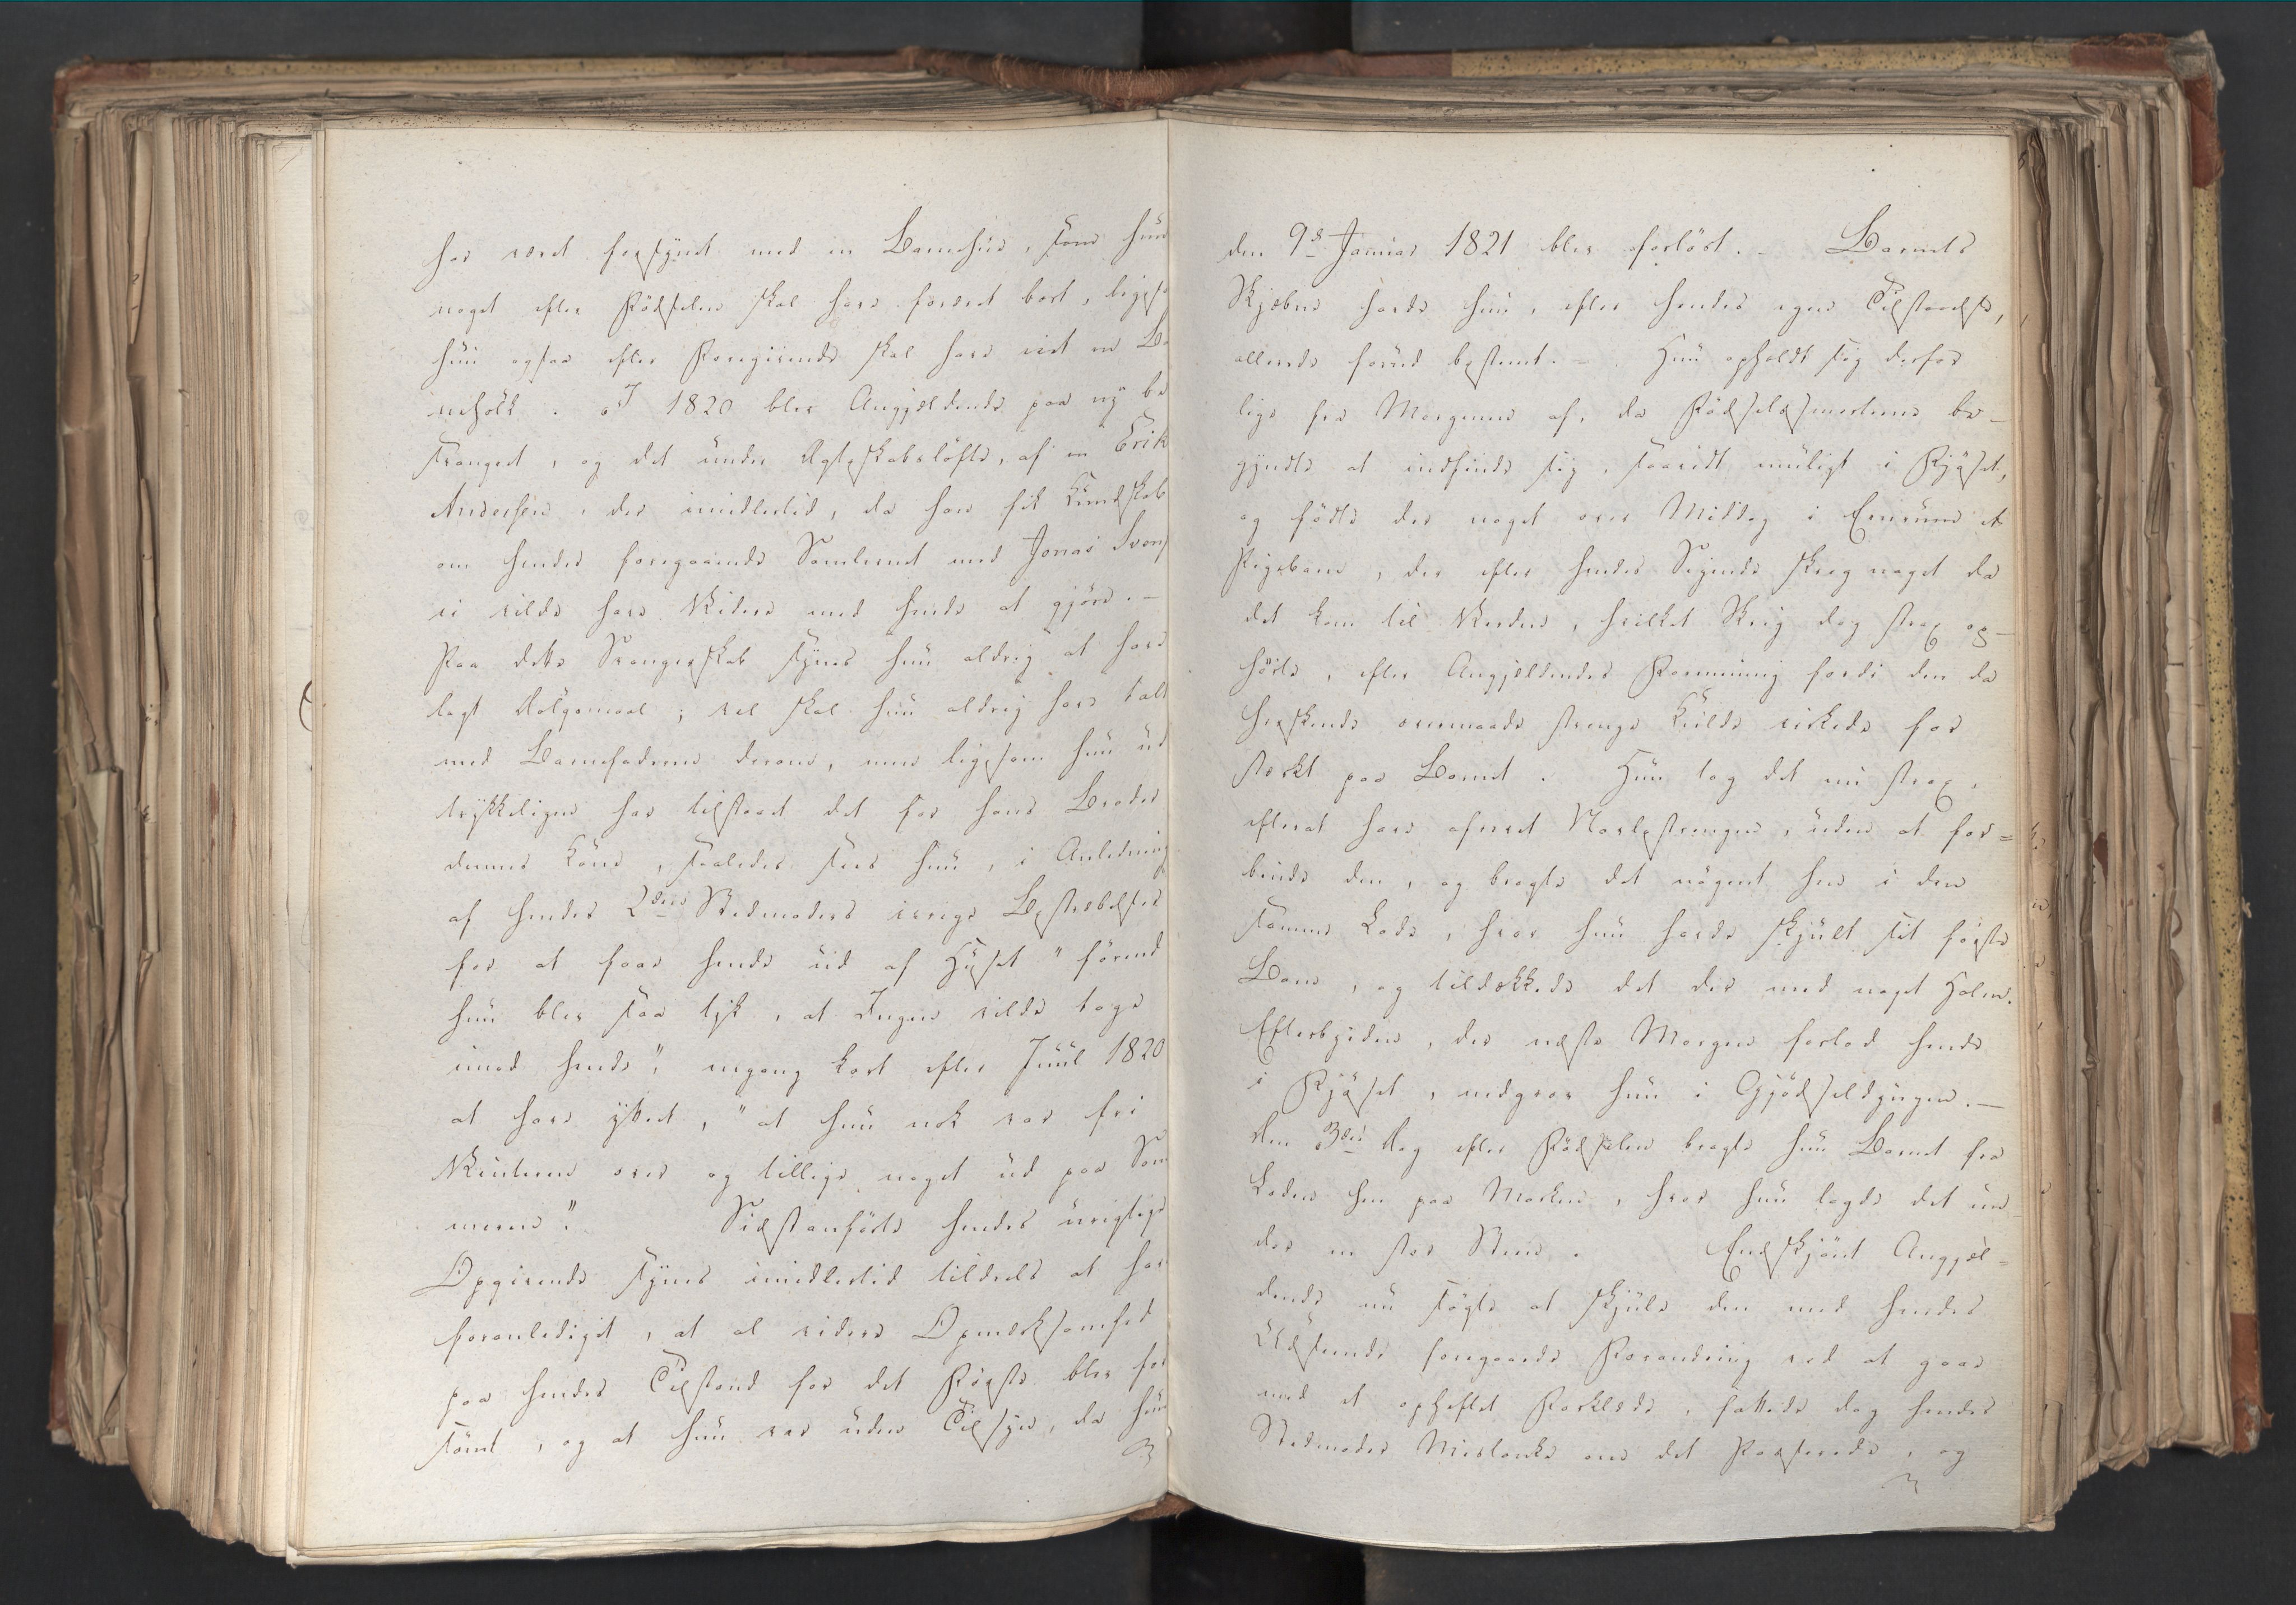 har været forsynet med en Barnehue, som hun
noget efter Födselen skal have foræret bort, ligesom
hun ogsaa efter Foregivende skal have viist en
. I 1820 blev Angjældende paa ny be
svangret, og det under Ægteskabslöfte, af en Erik
Andersen, der imidlertid, da han fik Kundskab
om hendes foregaaende Samlevnet med Jonas Svens
ei vilde have videre med hende at gjöre. –
Paa dette Svangerskab synes hun aldrig at have
lagt Dölgsmaal; vel skal hun aldrig have talt
med Barnefaderen derom, men ligesom hun ud
trykkeligen har tilstaaet det for hans Broder
dennes Kone, saaledes skal hun, i Anledning
af hendes 2den Stedmoders ivrige Bestræbelser
for at faae hende ud af Huset "förend
hun blev saa tyk, at Ingen vilde tage
imod hende", engang kort efter Juul 1820
at have yttret, "at hun nok var fri
Vinteren over og tillige noget ud paa Som
meren". Sidstanförte hendes urigtige
Opgivende synes imidlertid tildeels at have
foranlediget, at al videre Opmærksomhed
paa hendes Tilstand for det Förste blev for
sömt, og at hun var uden Tilsyn, da hun
den 9de Januar 1821 blev forlöst. – Barnets
Skjæbne havde hun, efter hendes egen Tilstaaelse,
allerede forud bestemt. – Hun opholdt sig derfor
lige fra Morgenen af, da Födselssmerterne be-
gyndte at indfinde sig, saavidt muligt i Fjöset,
og födte der noget over Middag i Eenrum et
Pigebarn, der efter hendes Sigende skreg noget da
det kom til Verden, hvilket Skrig dog strax op-
hörte, efter Angjældendes Formening fordi den da
herskende overmaade strenge Kulde virkede for
stærkt paa Barnet. Hun tog det nu strax,
efterat have afrevet Navlestrengen, uden at for=
binde den, og bragte det nögent hen i den
samme Lade, hvor hun havde skjult sit förste
Barn, og tildækkede det der med noget Halm.
Efterbyrden, der næste Morgen forlod hende
i Fjöset, nedgrov hun i Gjödseldyngen. –
Den 3die Dag efter Födselen bragte hun Barnet fra
Laden hen paa Marken, hvor hun lagde det un-
der en stor Steen. Endskjönt Angjæl=
dende nu sögte at skjule den med hendes
Udseende foregaaede Forandring ved at gaae
med et opheftet Forklæde, fattede dog hendes
Stedmoder Mistanke om det Passerede, og